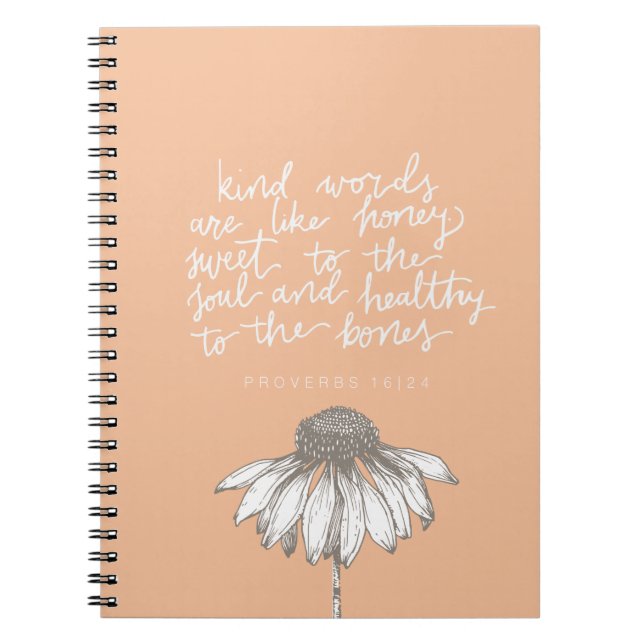 kind words
are like honey,
sweet to the
soul and healthy
to the bones
PROVERBS 16|24